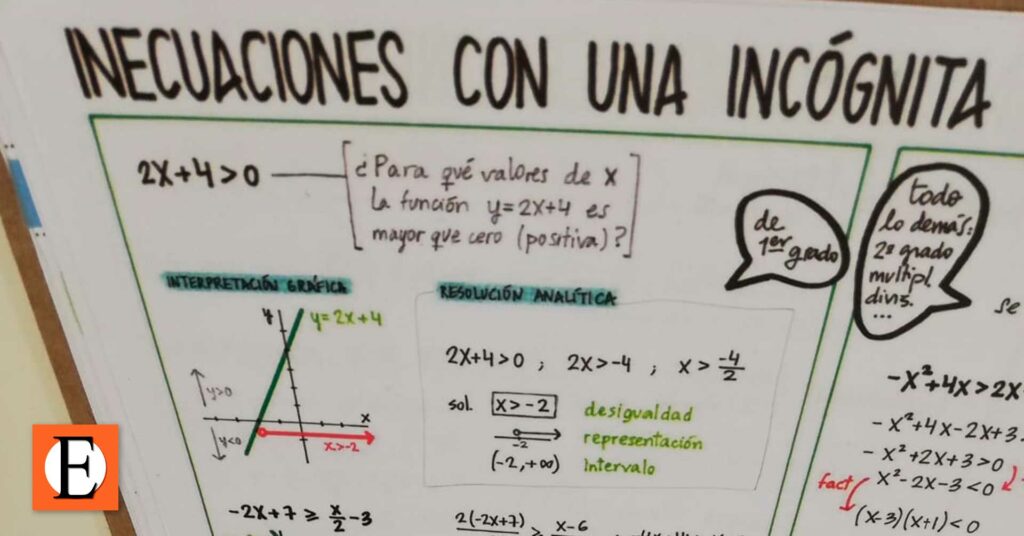 INECUACIONES CON UNA INCÓGNITA
2X+4>0
¿Para qué valores de x
la función y=2x+4 es
mayor que cero (positiva)?
de
1er grado
todo
lo demás:
2º grado
multipl.
divis.
...
se
INTERPRETACIÓN GRÁFICA
y
y=2x+4
y>0
y<0
x
x>-2
RESOLUCIÓN ANALÍTICA
2x+4>0 ; 2x>-4 ; x> -4/2
sol. x>-2 desigualdad
-2 representación
(-2,+∞) Intervalo
-2x+7 ≥ x/2 -3
2(-2x+7)
x-6
-x²+4x>2x
-x²+4x-2x+3
-x²+2x+3>0
fact x²-2x-3<0
(x-3)(x+1)<0
E